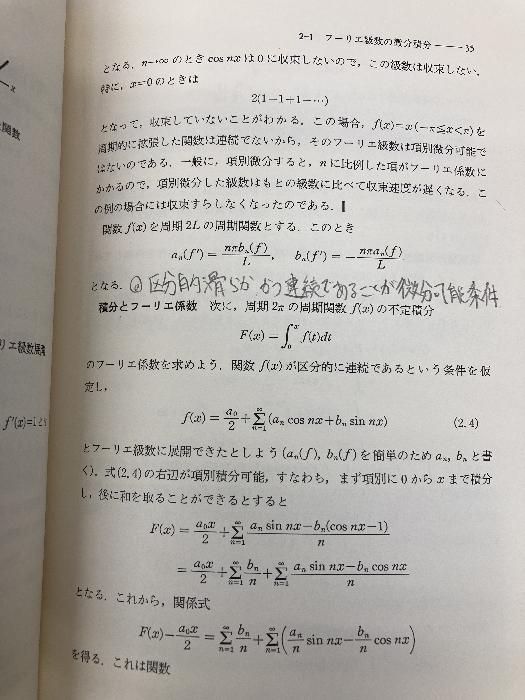 2-1 フーリエ級数の微分積分 ——— 35
となる．n→∞ のとき cos nx は 0 に収束しないので，この級数は収束しない．
特に，x=0 のときは
2(1−1+1−⋯)
となって，収束していないことがわかる．この場合，f(x)=x(−π≦x<π) を
周期的に拡張した関数は連続でないから，そのフーリエ級数は項別微分可能で
はないのである．一般に，項別微分すると，n に比例した項がフーリエ係数に
かかるので，項別微分した級数はもとの級数に比べて収束速度が遅くなる．こ
の例の場合には収束すらしなくなったのである．▌
関数 f(x) を周期 2L の周期関数とする．このとき
aₙ(f′) = nπbₙ(f)/L, bₙ(f′) = −nπaₙ(f)/L
となる．@ 区分的滑らか かつ 連続であることが微分可能条件
積分とフーリエ係数 次に，周期 2π の周期関数 f(x) の不定積分
F(x) = ∫₀ˣ f(t)dt
のフーリエ係数を求めよう．関数 f(x) が区分的に連続であるという条件を仮
定し，
f(x) = a₀/2 + Σ_{n=1}^{∞} (aₙ cos nx + bₙ sin nx) (2.4)
とフーリエ級数に展開できたとしよう (aₙ(f), bₙ(f) を簡単のため aₙ, bₙ と書
く)．式(2.4) の右辺が項別積分可能，すなわち，まず項別に 0 から x まで積分
し，後に和を取ることができるとすると
F(x) = a₀x/2 + Σ_{n=1}^{∞} (aₙ sin nx − bₙ(cos nx − 1))/n
= a₀x/2 + Σ_{n=1}^{∞} bₙ/n + Σ_{n=1}^{∞} (aₙ sin nx − bₙ cos nx)/n
となる．これから，関係式
F(x) − a₀x/2 = Σ_{n=1}^{∞} bₙ/n + Σ_{n=1}^{∞} (aₙ/n sin nx − bₙ/n cos nx)
を得る．これは関数
x
関数
エ級数展開
f′(x)=1と